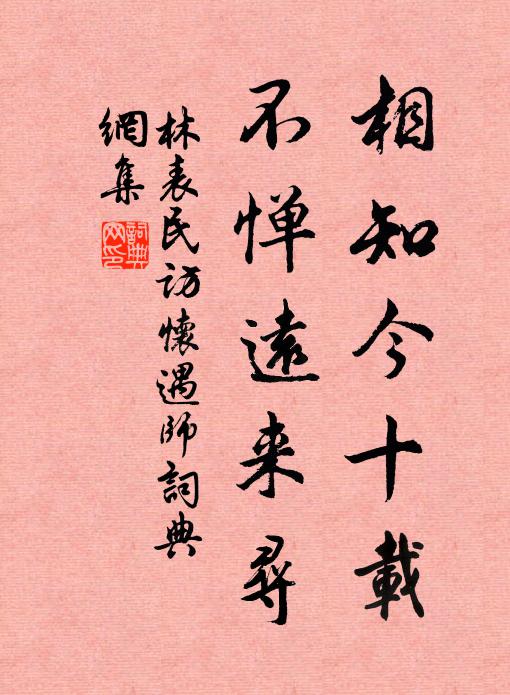 相知今十載
不惮遠来尋
林表民訪懷遇師詞典
網集
詞典
网印